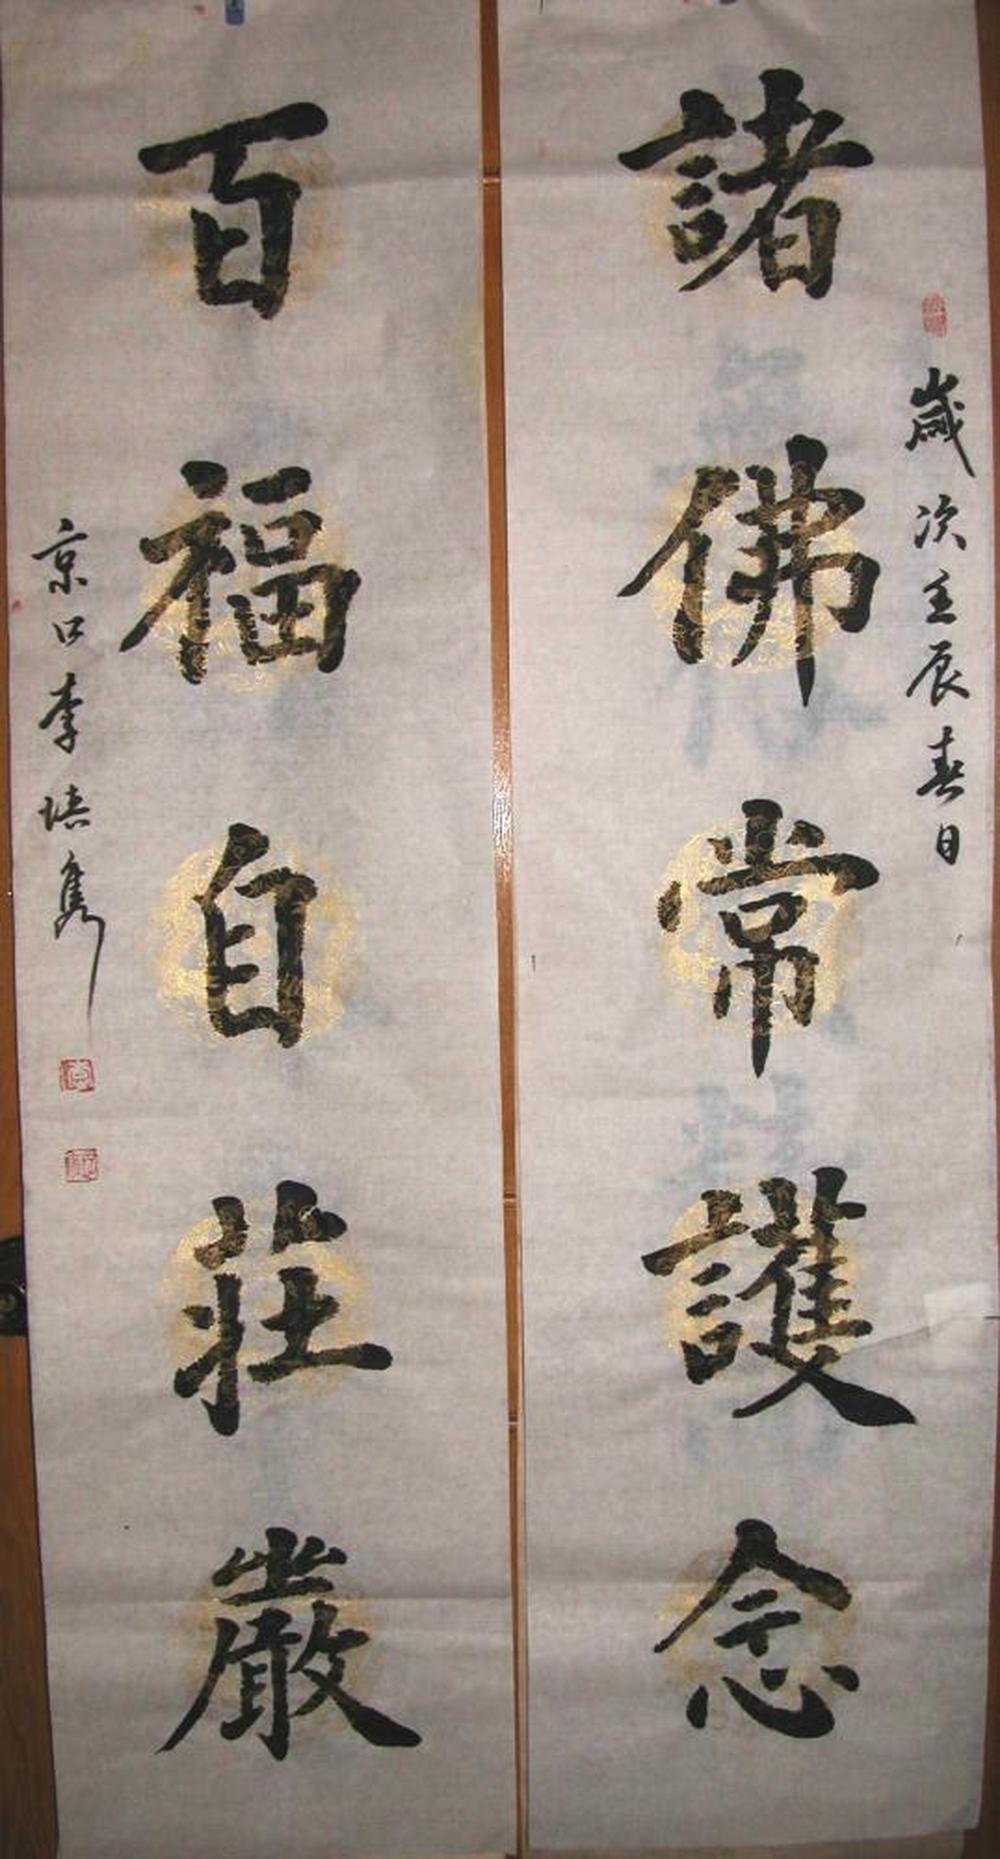 歲次壬辰春日
諸佛常護念
百福自莊嚴
京口李培隽